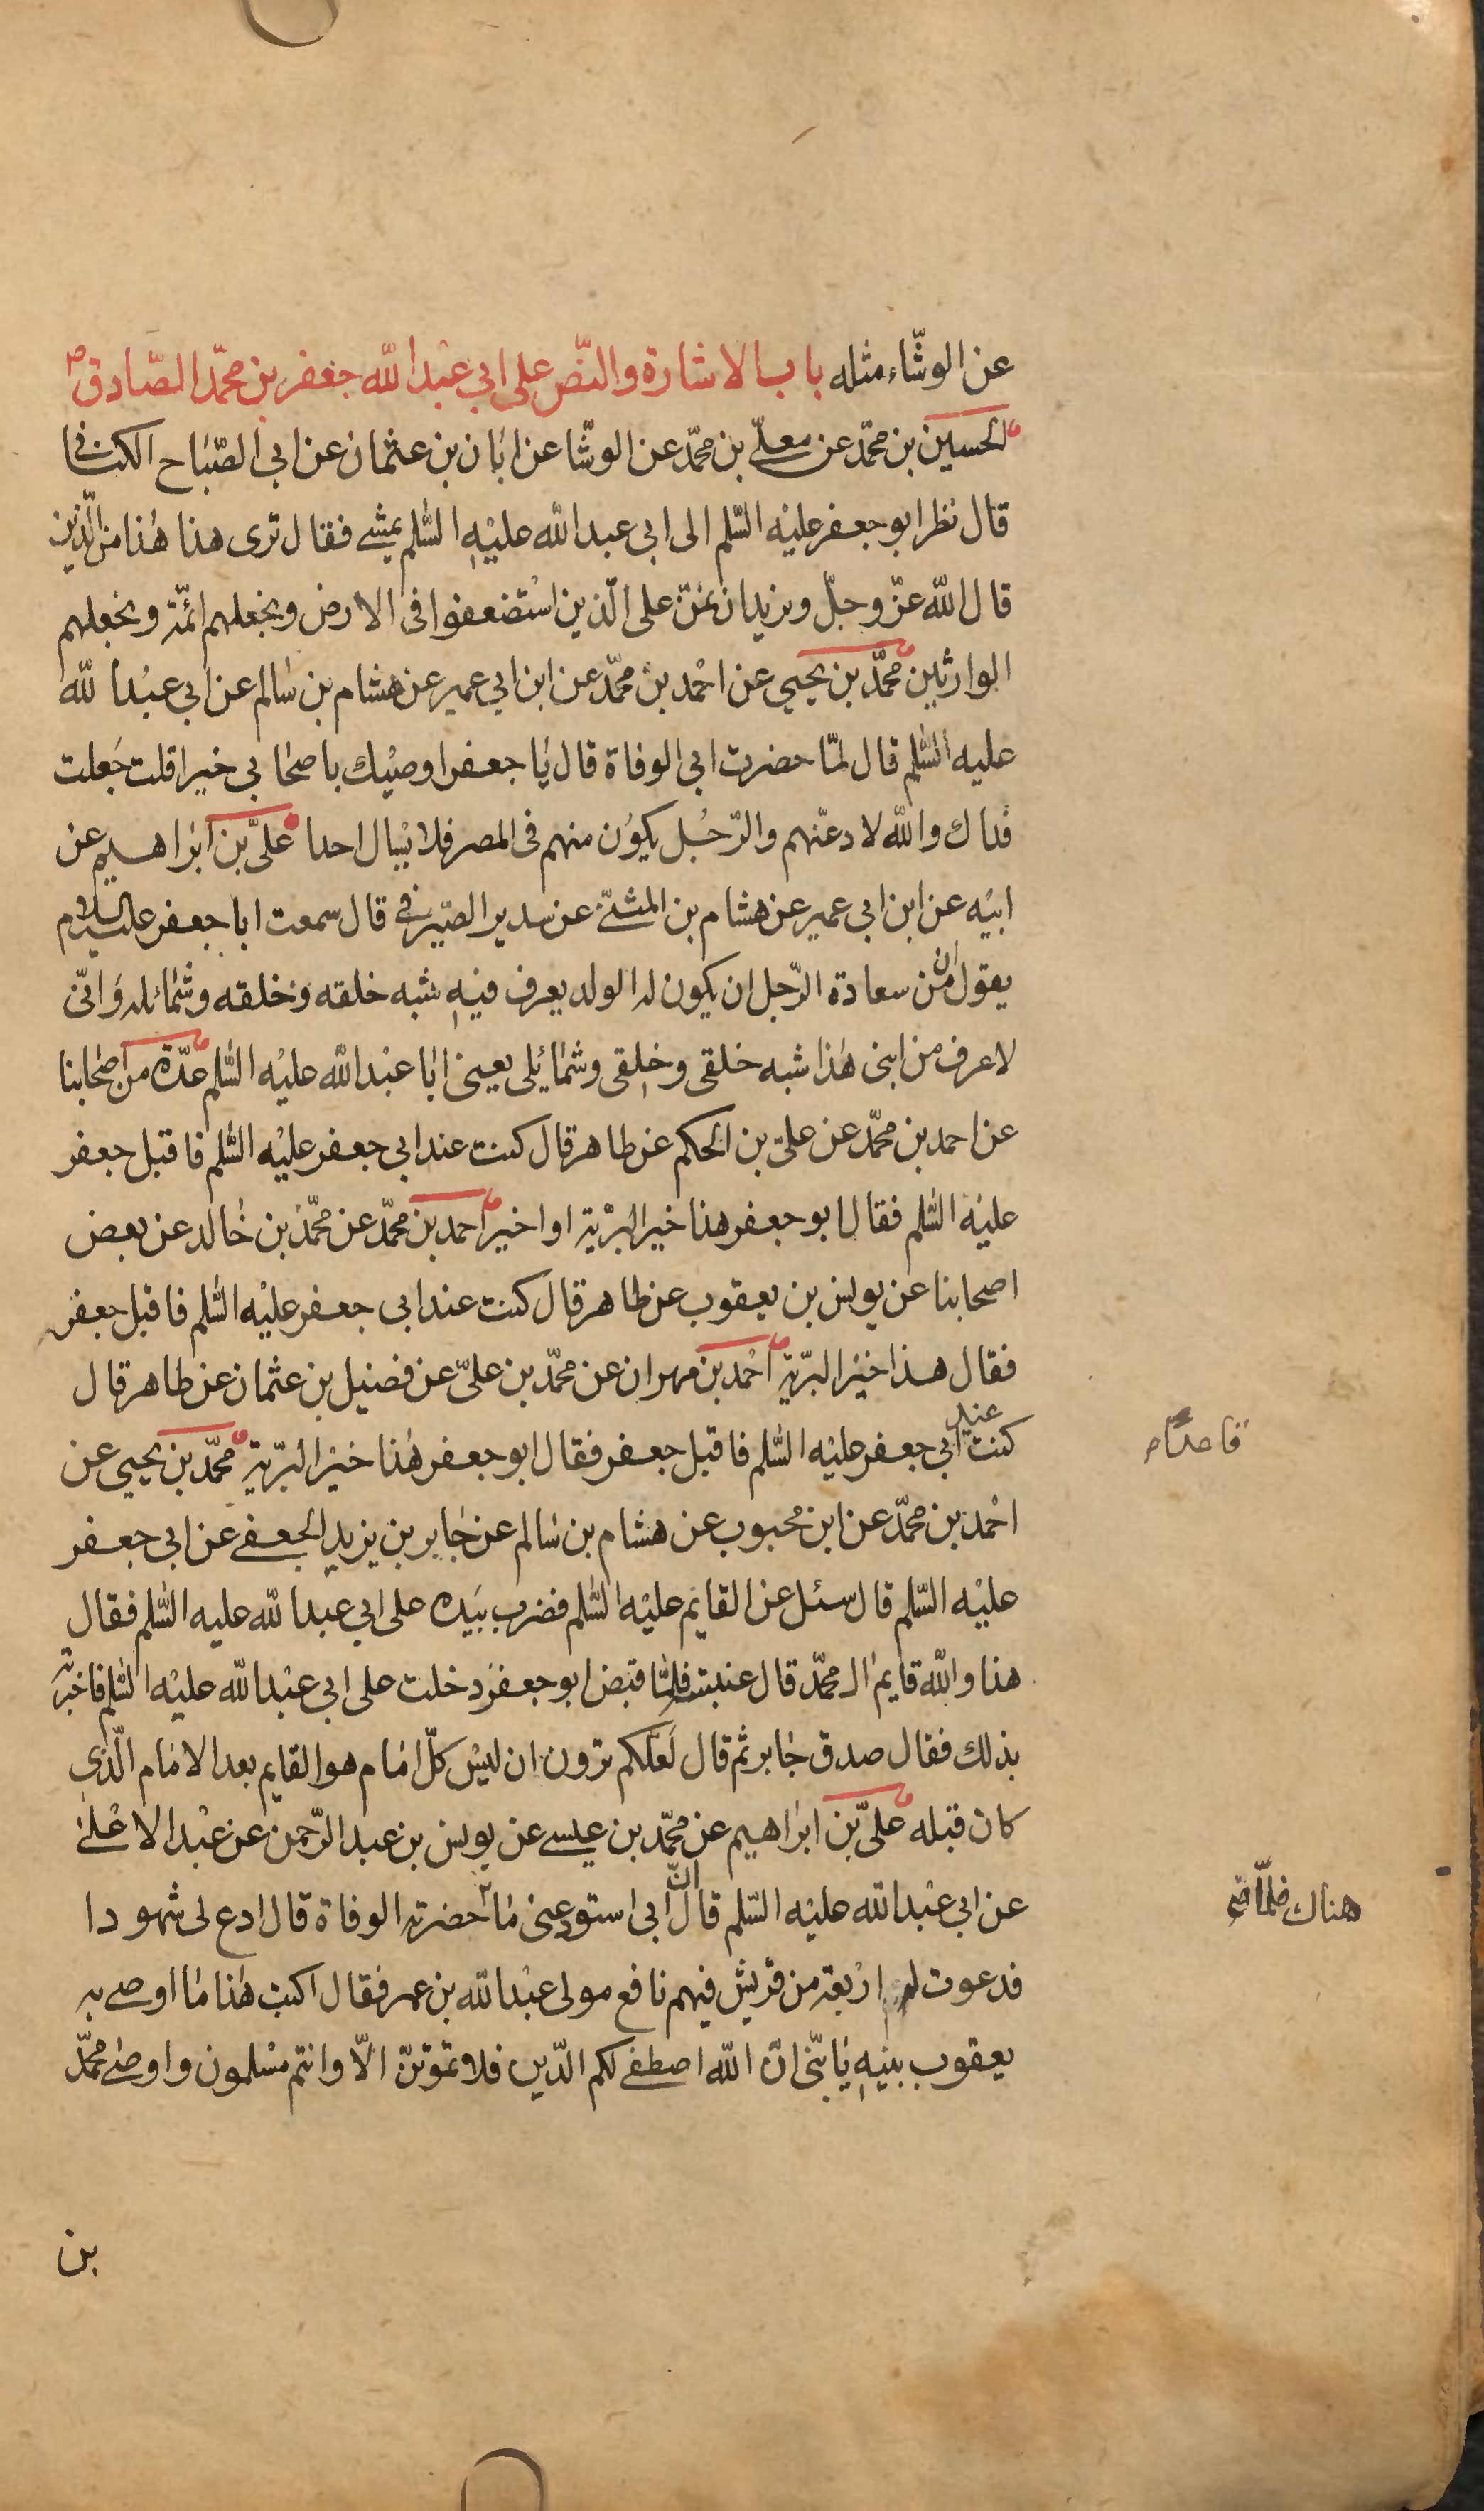 عن الوشّاء مثله باب الاشارة والنّص على ابي عبد الله جعفر بن محمّد الصّادق ص
الحسين بن محمّد عن معلّى بن محمّد عن الوشّا عن ابان بن عثمان عن ابي الصّباح الكنانى
قال نظر ابو جعفر عليه السّلم الى ابى عبد الله عليه السّلم يمشى فقال ترى هذا هذا من الّذين
قال الله عزّ وجلّ ونريد ان نمنّ على الّذين استضعفوا فى الارض ونجعلهم ائمّة ونجعلهم
الوارثين محمّد بن يحيى عن احمد بن محمّد عن ابن ابي عمير عن هشام بن سالم عن ابي عبد الله
عليه السّلم قال لمّا حضرت ابى الوفاة قال يا جعفر اوصيك باصحابي خيرا قلت جعلت
فداك والله لادعنّهم والرّجل يكون منهم فى المصر فلا يسال احدا علىّ بن ابراهيم عن
ابيه عن ابن ابى عمير عن هشام بن المثنّى عن سدير الصّيرفى قال سمعت ابا جعفر عليه السلام
يقول ان من سعادة الرّجل ان يكون له الولد يعرف فيه شبه خلقه وخلقه وشمائله وانّى
لاعرف من ابنى هذا شبه خلقى وخلقى وشمائلى يعنى ابا عبد الله عليه السّلم عدّة من اصحابنا
عن احمد بن محمّد عن علىّ بن الحكم عن طاهر قال كنت عند ابي جعفر عليه السّلم فاقبل جعفر
عليه السّلم فقال ابو جعفر هذا خير البريّة او اخير احمد بن محمّد عن محمّد بن خالد عن بعض
اصحابنا عن يونس بن يعقوب عن طاهر قال كنت عند ابى جعفر عليه السّلم فاقبل جعفر
فقال هذا خير البريّة احمد بن مهران عن محمّد بن علىّ عن فضيل بن عثمان عن طاهر قال
كنت عند ابي جعفر عليه السّلم فاقبل جعفر فقال ابو جعفر هذا خير البريّة محمّد بن يحيى عن
قاعدا م
احمد بن محمّد عن ابن محبوب عن هشام بن سالم عن جابر بن يزيد الجعفى عن ابى جعفر
عليه السّلم قال سئل عن القايم عليه السّلم فضرب بيده على ابي عبد الله عليه السّلم فقال
هذا والله قايم ال محمّد قال عنبسة فلمّا قبض ابو جعفر دخلت على ابى عبد الله عليه السّلم فاخبرته
بذلك فقال صدق جابر ثم قال لعلّكم ترون ان ليس كلّ امام هو القايم بعد الامام الّذى
كان قبله علىّ بن ابراهيم عن محمّد بن عيسى عن يونس بن عبد الرّحمن عن عبد الاعلى
عن ابى عبد الله عليه السّلم قال انّ ابى استودعنى ما حضرته الوفاة قال ادع لى شهودا
هناك فلمّا
فدعوت له اربعة من قريش فيهم نافع مولى عبد الله بن عمر فقال اكتب هذا ما اوصى به
يعقوب بنيه يا بنىّ انّ الله اصطفى لكم الدّين فلا تموتنّ الّا وانتم مسلمون واوصى محمّد
بن